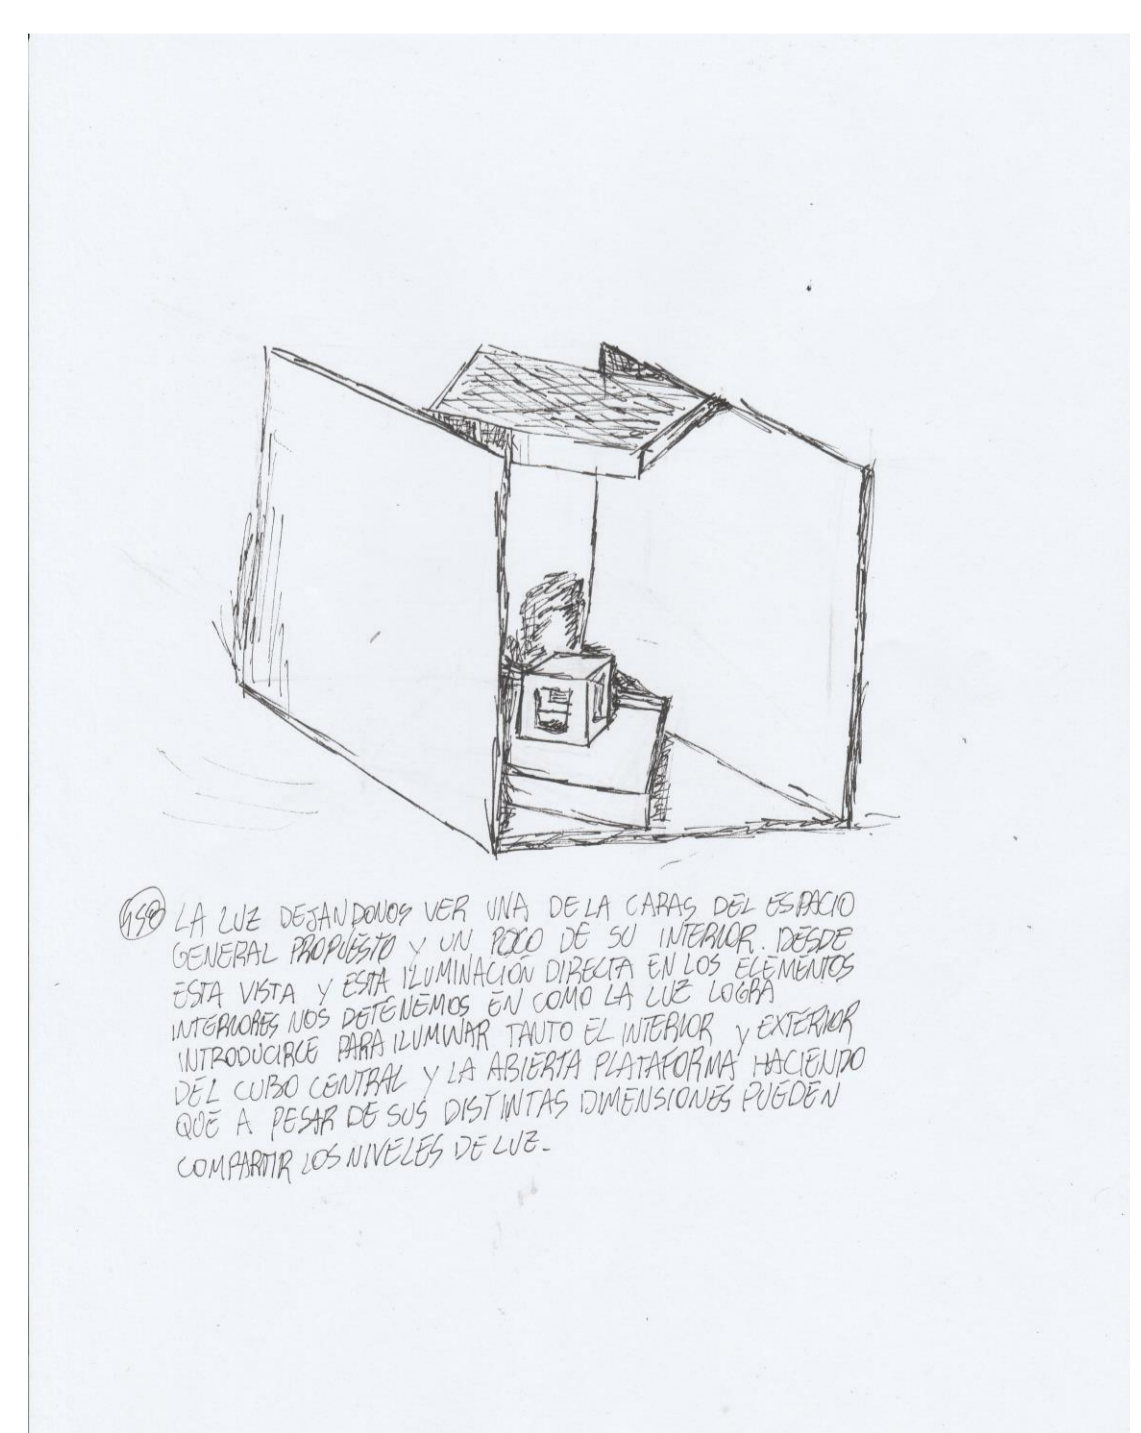 458 LA LUZ DEJANDONOS VER UNA DE LA CARAS DEL ESPACIO
GENERAL PROPUESTO Y UN POCO DE SU INTERIOR. DESDE
ESTA VISTA Y ESTA ILUMINACIÓN DIRECTA EN LOS ELEMENTOS
INTERIORES NOS DETENEMOS EN COMO LA LUZ LOGRA
INTRODUCIRCE PARA ILUMINAR TANTO EL INTERIOR Y EXTERIOR
DEL CUBO CENTRAL Y LA ABIERTA PLATAFORMA HACIENDO
QUE A PESAR DE SUS DISTINTAS DIMENSIONES PUEDEN
COMPARTIR LOS NIVELES DE LUZ.